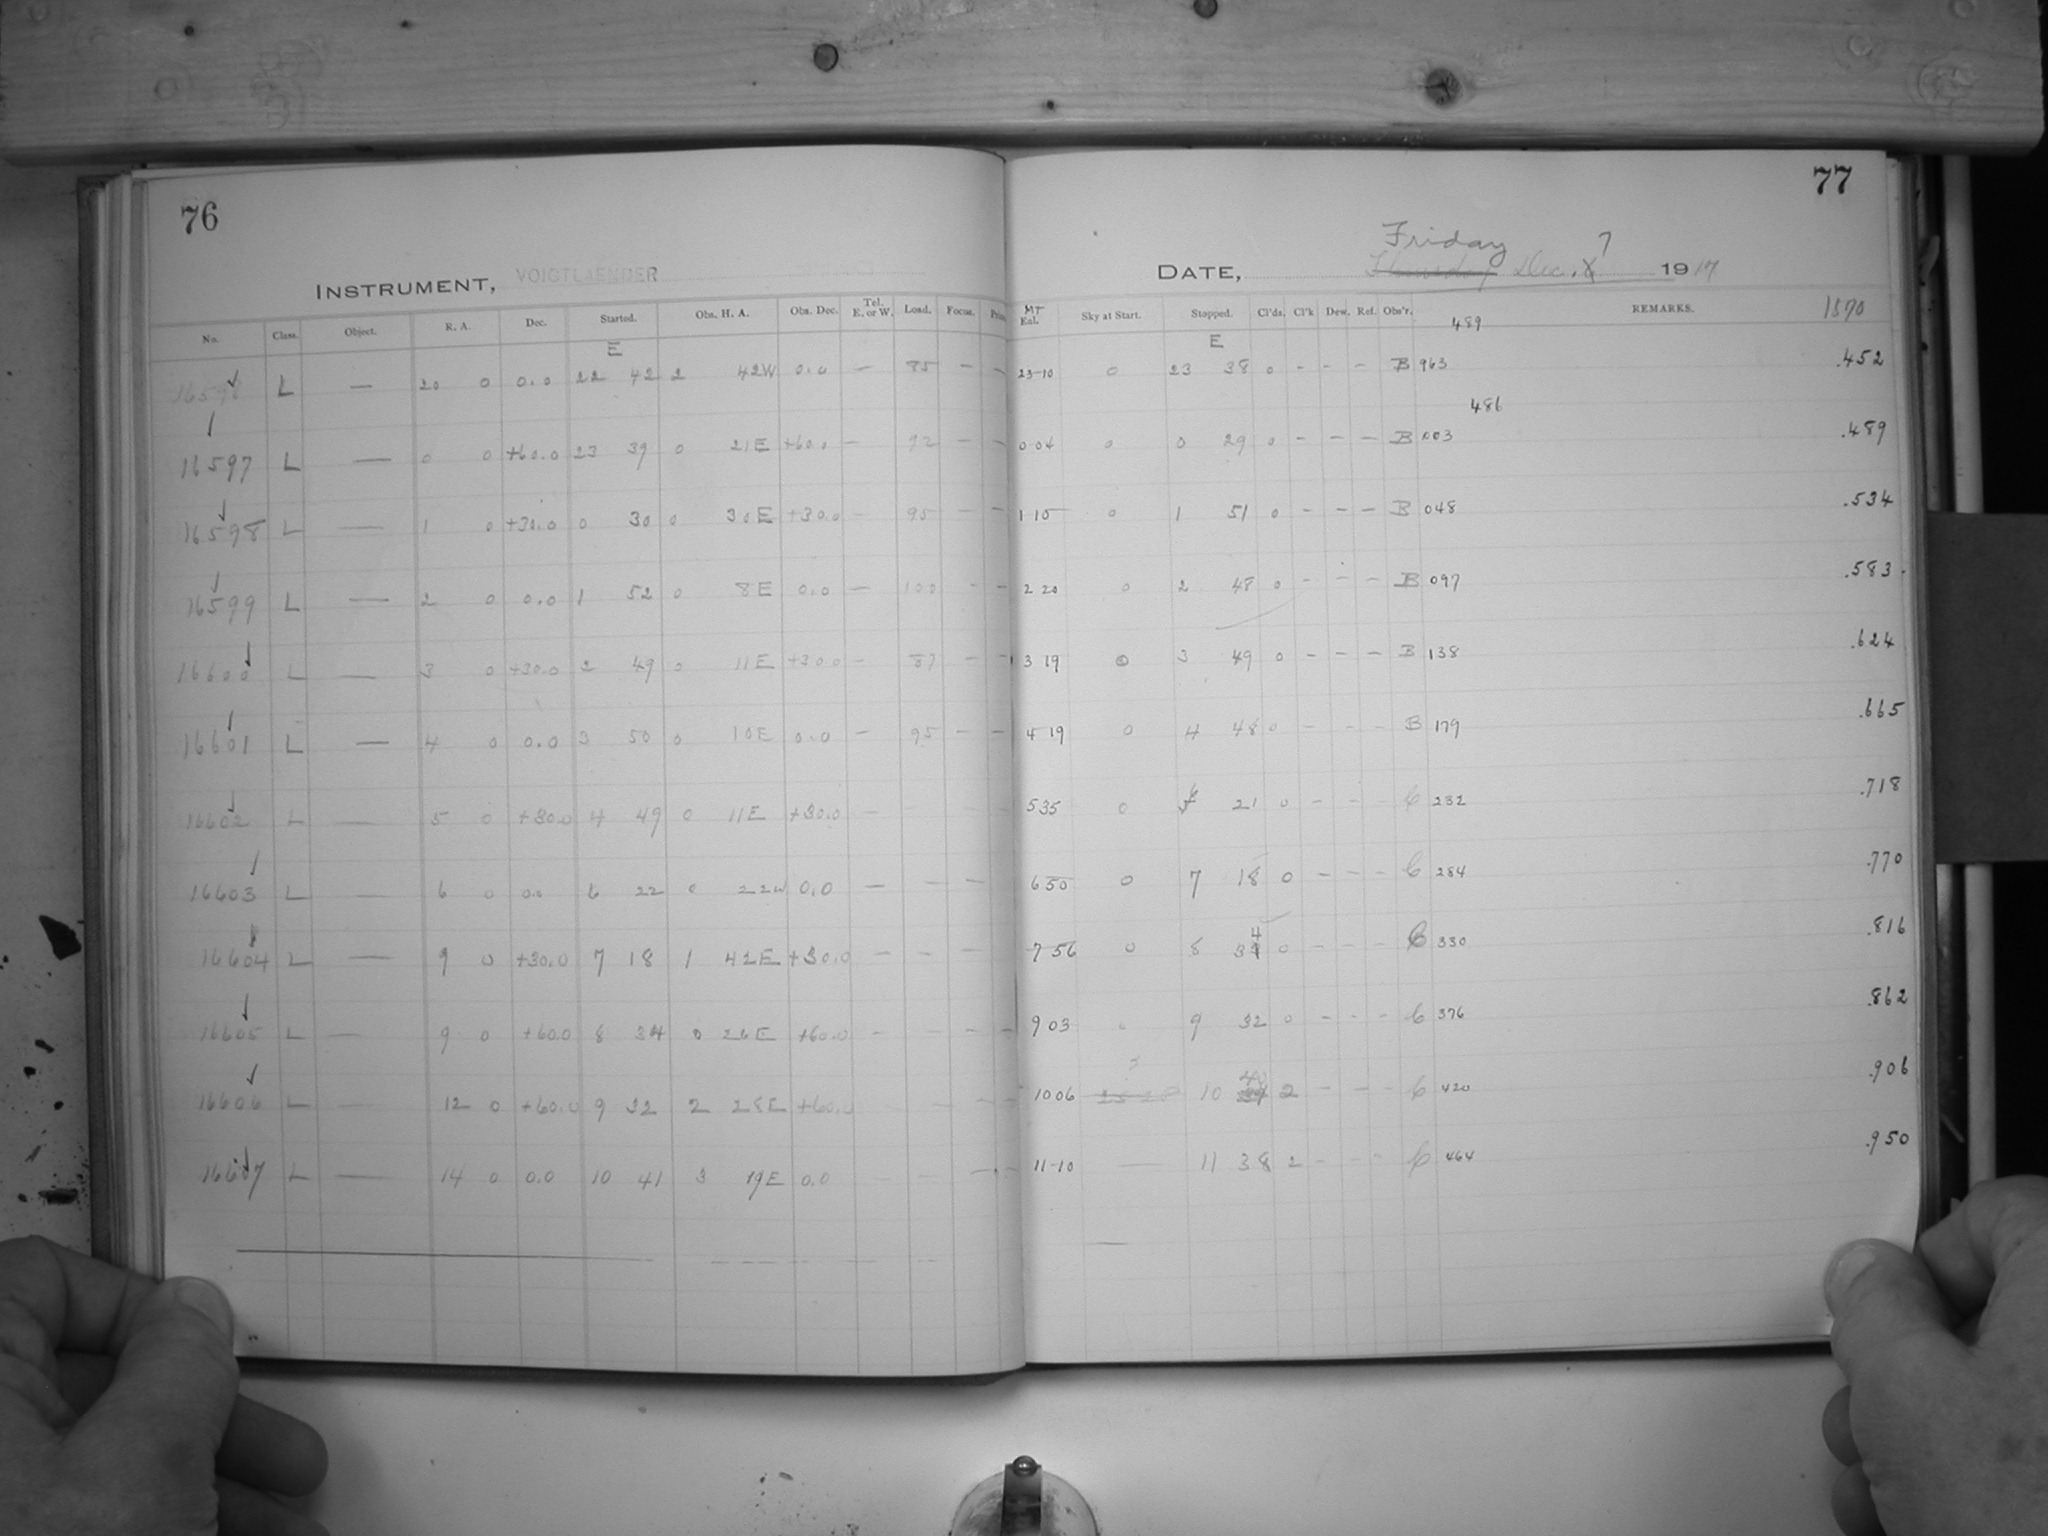 76
77
INSTRUMENT, VOIGTLAENDER
Friday 7
DATE, Thursday Dec. 1917
No. Class. Object. R. A. Dec. Started. Obs. H. A. Obs. Dec. Tel. E. or W. Load. Focus. MT Eal. Sky at Start. Stopped. Cl'ds. Cl'k Dew. Ref. Obs'r. REMARKS. 1570
E E 489
L — 20 0 0.0 22 42 2 42W 0.0 — 85 — — 23-10 0 23 38 0 - - - B 963 .452
486
16597 L — 0 0 +60.0 23 39 0 21E +60.0 — 92 — — 0 04 0 0 29 0 - - - B 003 .489
16598 L — 1 0 +30.0 0 30 0 30E +30.0 — 95 — — 1-10 0 1 51 0 - - - B 048 .534
16599 L — 2 0 0.0 1 52 0 8E 0.0 — 100 - — 2 20 0 2 48 0 - - - B 097 .583
16600 L — 3 0 +30.0 2 49 0 11E +30.0 — 87 — — 3 19 0 3 49 0 - - - B 138 .624
16601 L — 4 0 0.0 3 50 0 10E 0.0 — 95 — — 4 19 0 4 48 0 - - - B 179 .665
16602 L — 5 0 +30.0 4 49 0 11E +30.0 — 5 35 0 6 21 0 - - - C 232 .718
16603 L — 6 0 0.0 6 22 0 22W 0.0 — — — 6 50 0 7 18 0 - - - C 284 .770
16604 L — 9 0 +30.0 7 18 1 42E +30.0 — — — 7 56 0 8 34 0 - - - C 330 .816
16605 L — 9 0 +60.0 8 34 0 26E +60.0 - - - - 9 03 0 9 32 0 - - - C 376 .862
16606 L — 12 0 +60.0 9 32 2 28E +60.0 10 06 10 40 2 - - - C 420 .906
16607 L — 14 0 0.0 10 41 3 19E 0.0 — — — — 11-10 — 11 38 2 - - - C 464 .950